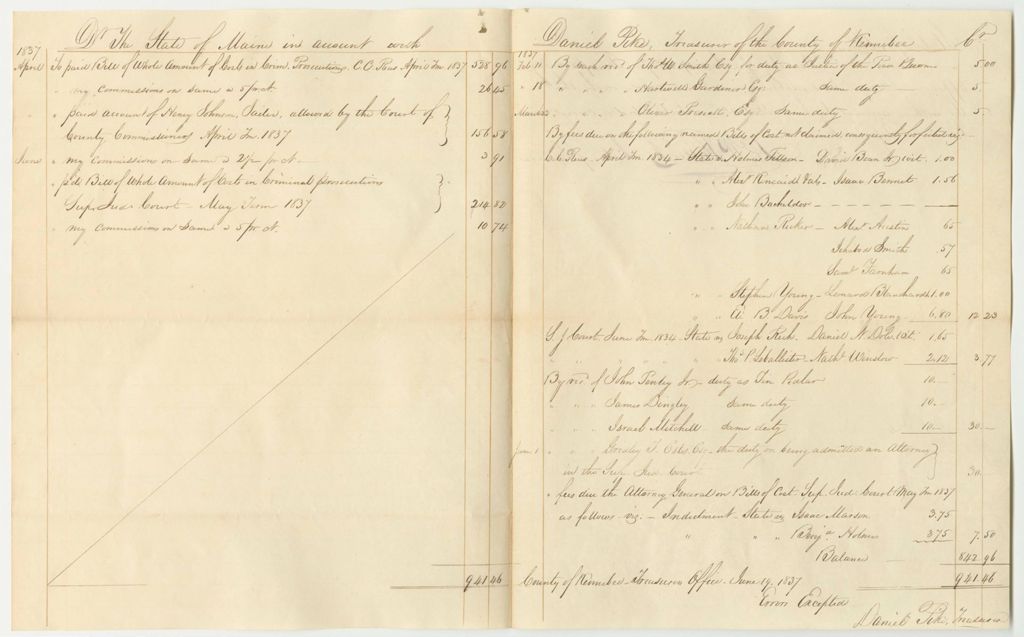 Dr The State of Maine in account with
1837
April To paid Bill of Whole Amount of Costs in Crim. Prosecutions C.C. Pleas April Tm 1837 528 96
" my commissions on Same a 5 pr ct. 26 45
" paid account of Henry Johnson, Jailer, allowed by the Court of
County Commissioners April Tm. 1837 156 58
June " my commissions on Same a 2 1/2 pr ct. 3 91
" p'd Bill of Whole Amount of Costs in Criminal prosecutions
Sup. Jud. Court - May Term 1837 214 82
" my commissions on Same a 5 pr ct. 10 74
941 46
Daniel Pike, Treasurer of the County of Kennebec Cr
1837
Feb 11 By cash of Esq. for duty as Justice of the Peace & Quorum 5.00
" 18 " " " Gardner Esq. Same duty 5
March " " " Oliver Prescott, Esq. Same duty 5.
By fees due on the following named Bills of Cost not claimed, consequently forfeited viz
C.C. Pleas. April Tm 1834 - State v. Holmes - David Bean Jr wit. 1.00
" " Alexr Kincaid & als - Isaac Bennet 1.56
" " John Bacheldor - - - -
" " Nathan Ricker - Alexr Austin 65
Ichabod Smith .57
Saml Farnham 65
" " Stephen Young - Lenard Blanchard 1.00
" " B Davis John Young 6.80 12 23
S. J. Court, June Tm. 1834 - State vs Joseph Rich. Daniel N. Dole wit. 1.65
" " " Thos P. - Nathl Winslow 2.12 3.77
By of John Jr - duty as 10. -
" " " James Dingley Same duty 10. -
" " " Israel Mitchell - Same duty 10 - 30. -
June 1 " " Esq - the duty on being admitted an Attorney
in the Sup. Jud. Court 30.
" fees due the Attorney General on Bills of Cost Sup. Jud. Court May Tm 1837
as follows - viz. - Indictment - State vs Isaac Marson 3.75
" " " Benja Holmes 3.75 7.50
Balance 842 96
County of Kennebec - Treasurers Office. June 19. 1837 941.46
Errors Excepted
Daniel Pike, Treasurer